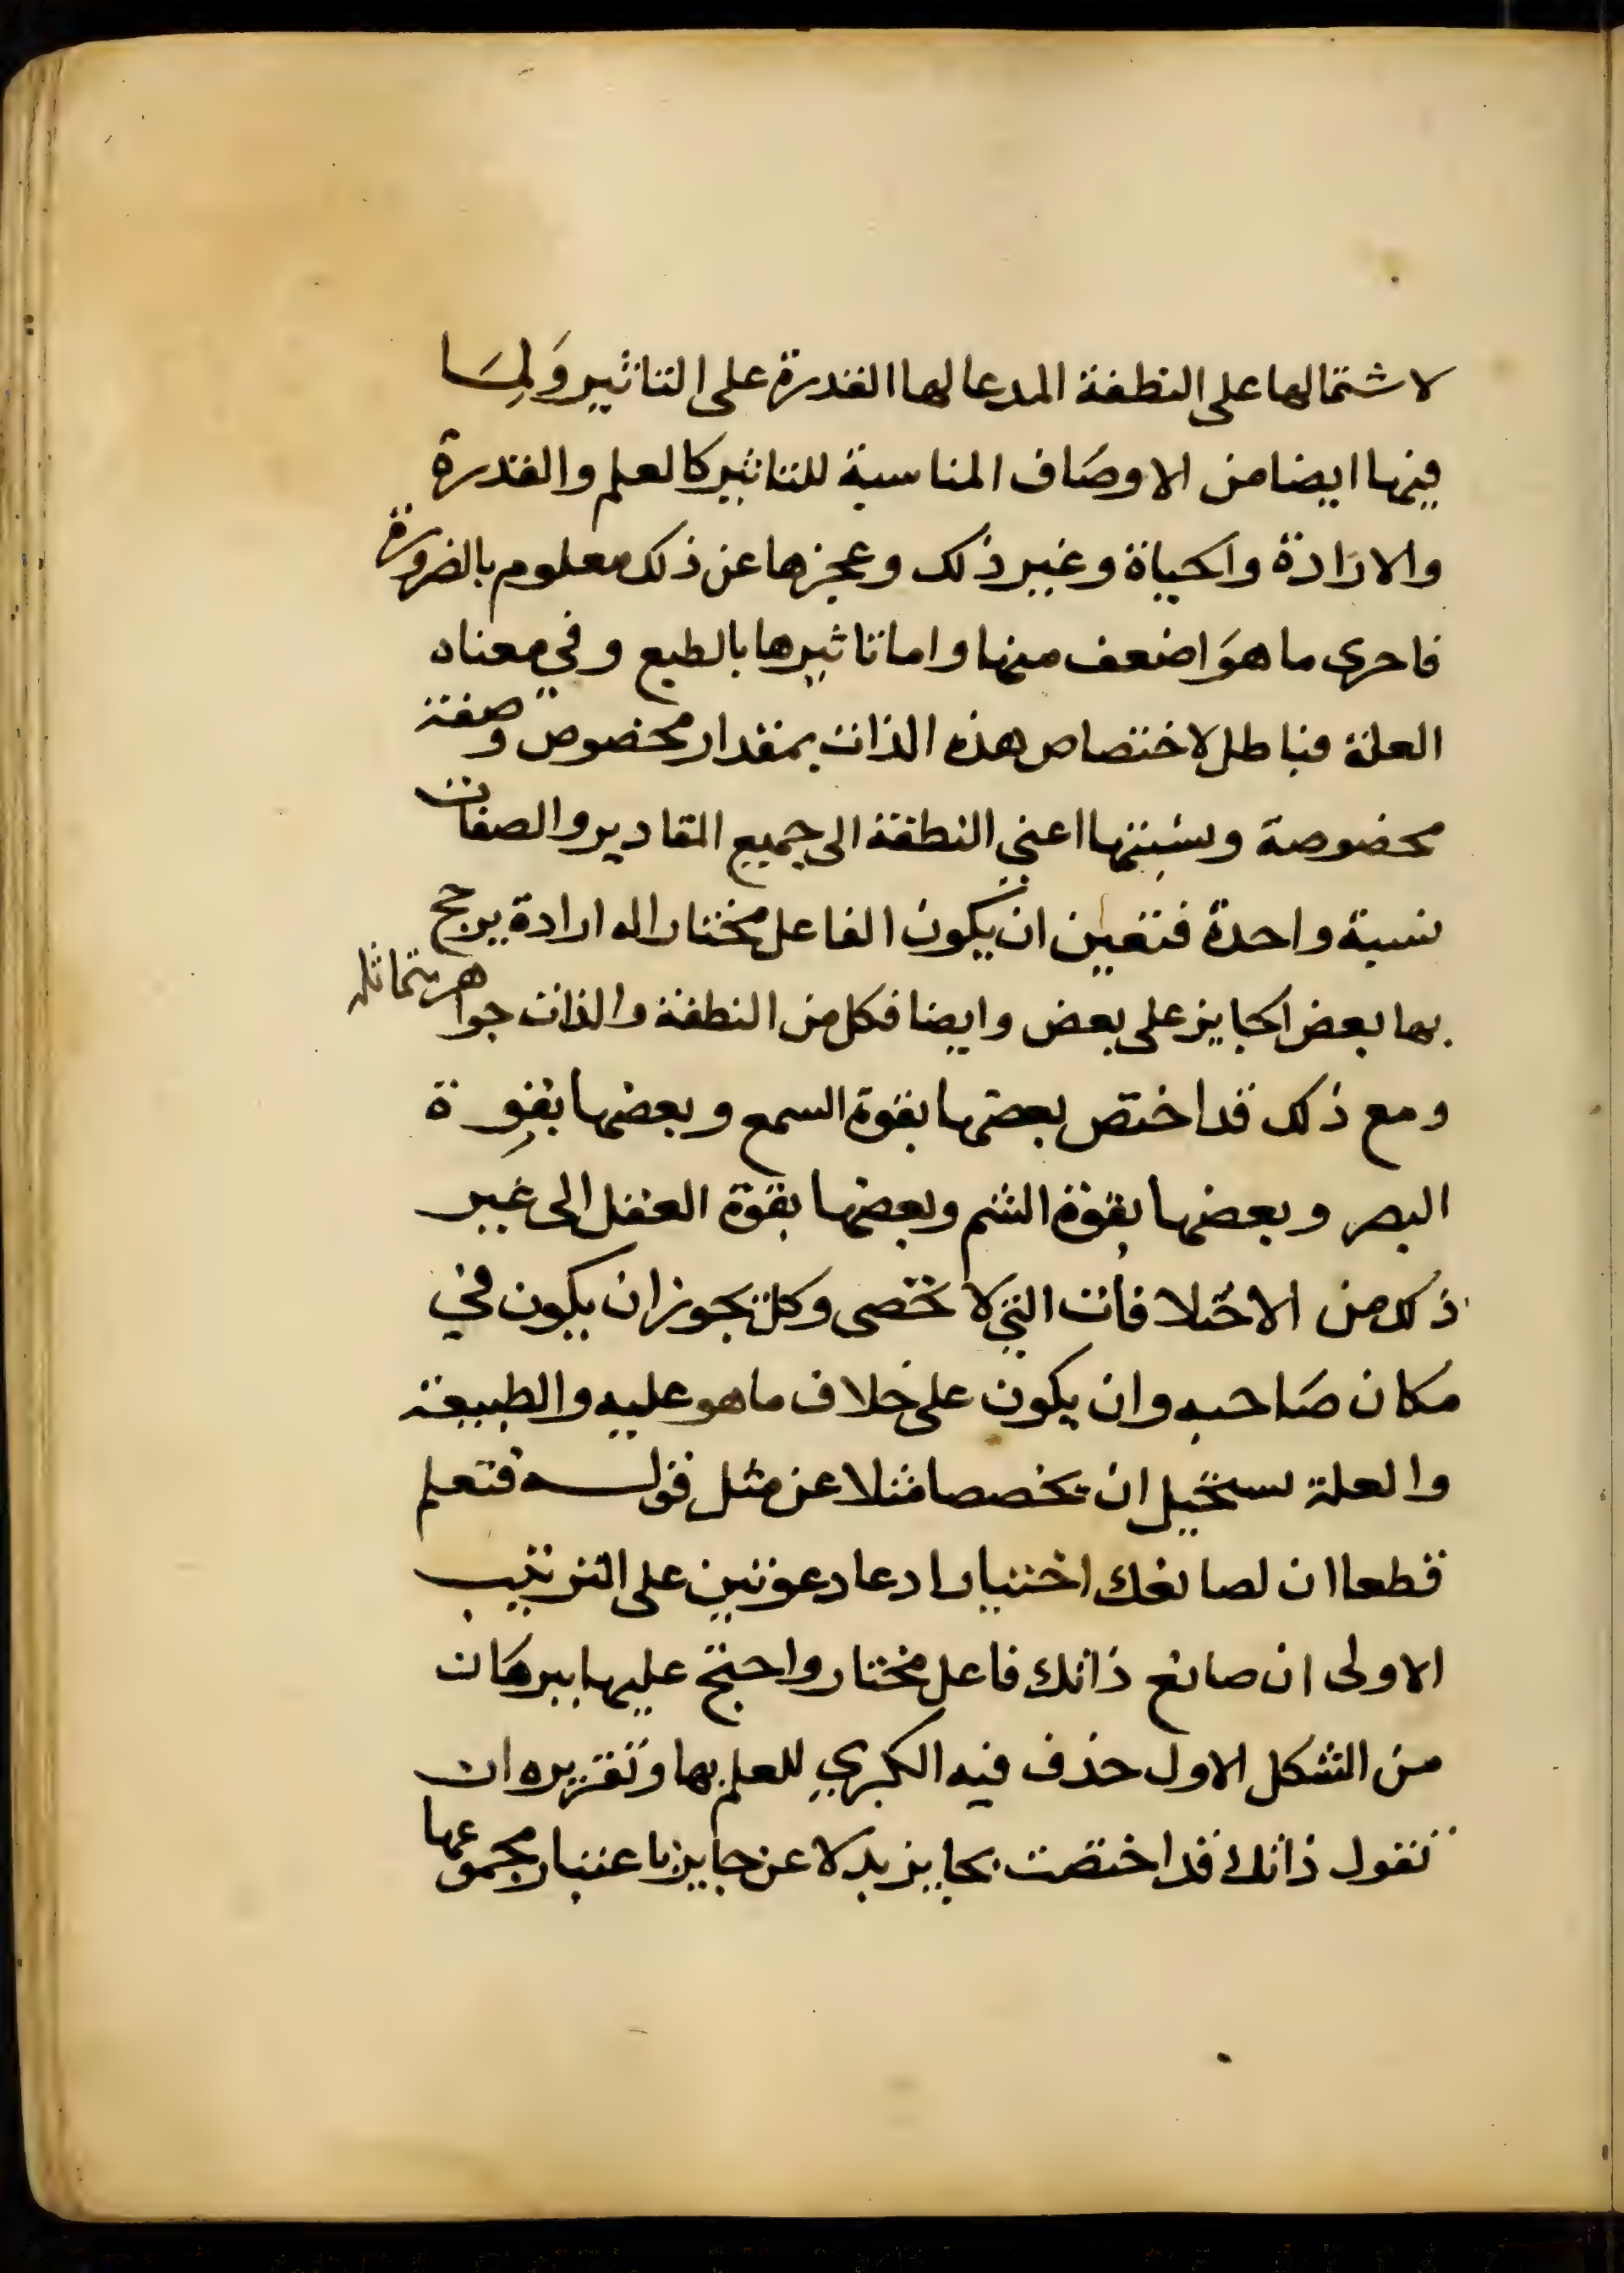 لاشتمالها على النطفة المدعا لها القدرة على التاثير وَلِمَا
فيها ايضا من الاوصَاف المناسبة للتاثير كالعلم والقدرة
والارَادة والحياة وغير ذلك وعجزها عن ذلك معلوم بالضرورة
فاحرى ما هوَ اضعف منها واما تاثيرها بالطبع وفي معناه
العلة فباطل لاختصاص هذه الذات بمقدار مخصوص وصفة
مخصوصة ونسبتها اعني النطفة الى جميع المقادير والصفات
نسبة واحدة فتعين ان يكون الفاعل مختارا له ارادة يرجح
بها بعض الجايز على بعض وايضا فكل من النطفة والذات جواهر متماثله
ومع ذلك قد اختص بعضها بقوة السمع وبعضها بقوِة
البصر وبعضها بقوة الشم وبعضها بقوة العقل الى غير
ذلك من الاختلافات التي لا تحصى وكل يجوز ان يكون في
مكان صَاحبه وان يكون على خلاف ما هو عليه والطبيعة
والعلة يستحيل ان يخصصا مثلا عن مثل قوله فتعلم
قطعا ان لصانعك اختيارا ادعا دعوتين على الترتيب
الاولى ان صانع ذاتك فاعل مختار واحتج عليها ببرهَان
من الشكل الاول حذف فيه الكبري للعلم بها وتقريره ان
تقول ذاتك قد اختصت بجايز بدلا عن جايز باعتبار مجموعها